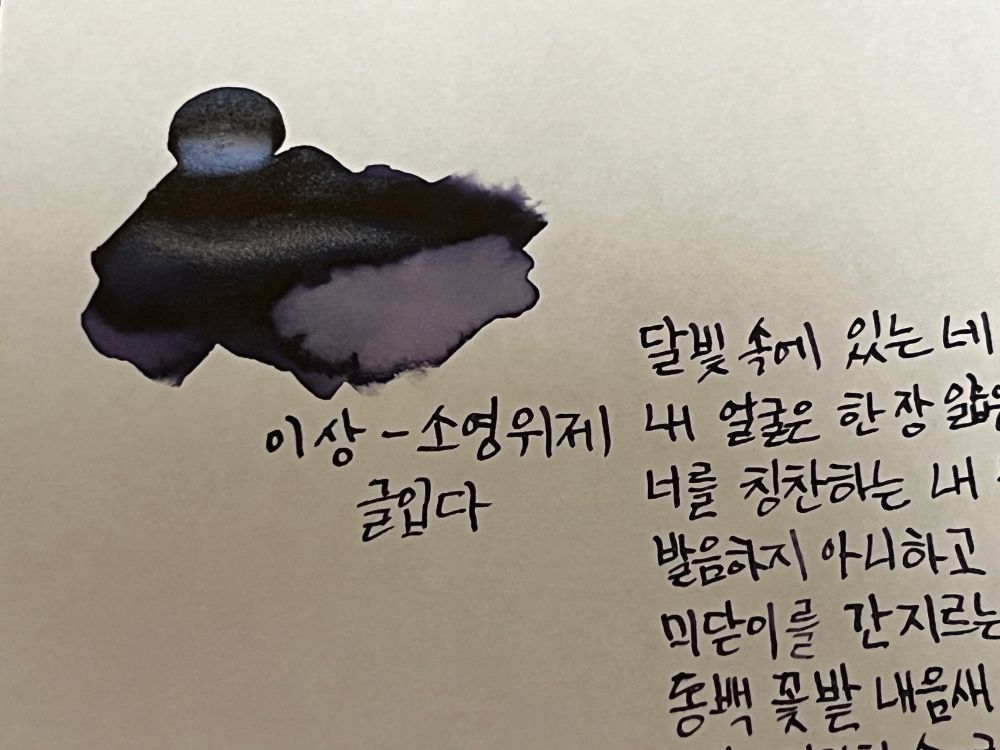 이상 - 소영위제
글입다
달빛 속에 있는 네
내 얼굴은 한 장
너를 칭찬하는 내
발음하지 아니하고
미닫이를 간지르는
동백 꽃밭 내음새